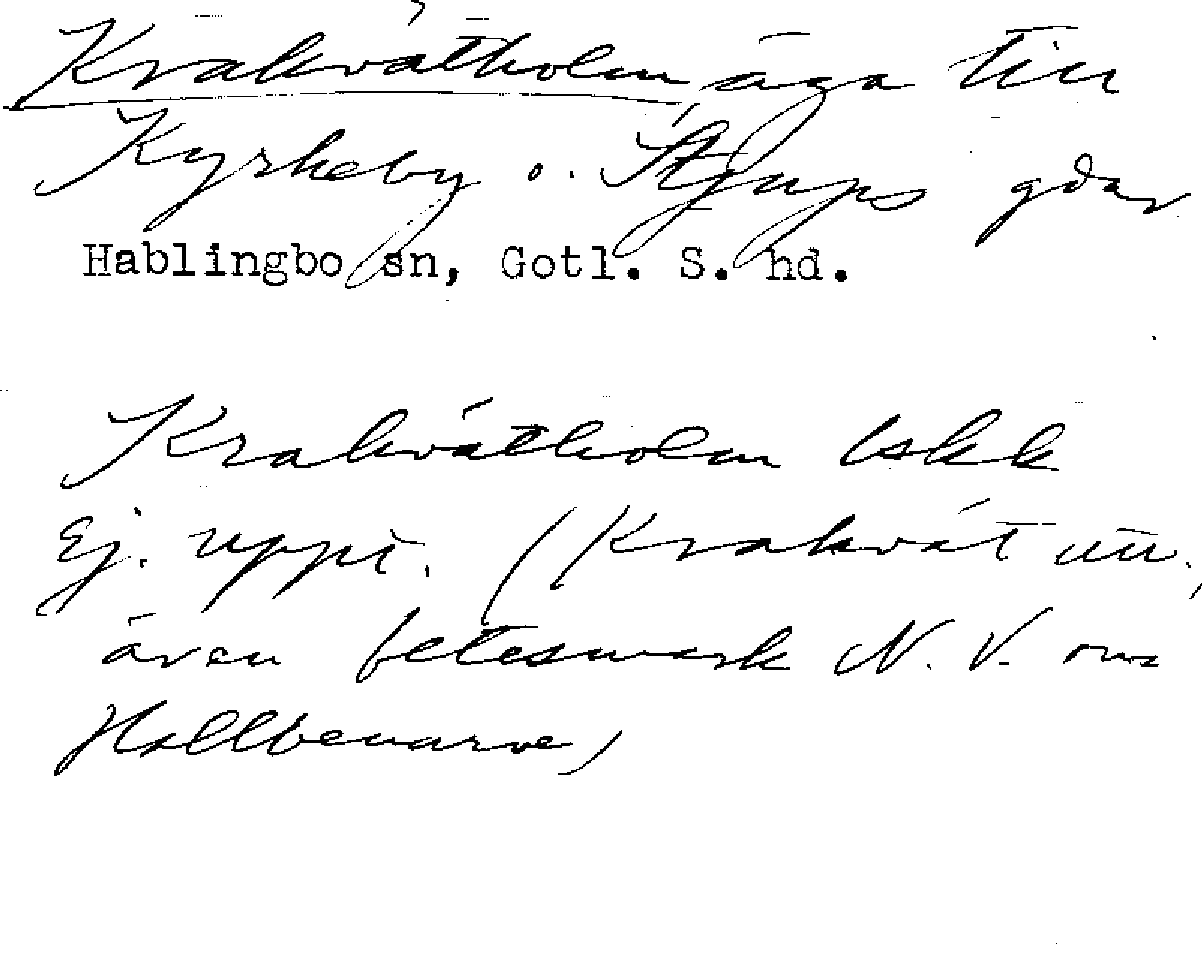 Krakvátholm äga till
Kyrkeby o. Stjups gdar
Hablingbo sn, Gotl. S. hd.
Krakvátholm lskk
Ej. uppt. (Krakvát utt.,
även betesmark N. V. om
Hallbenarve)